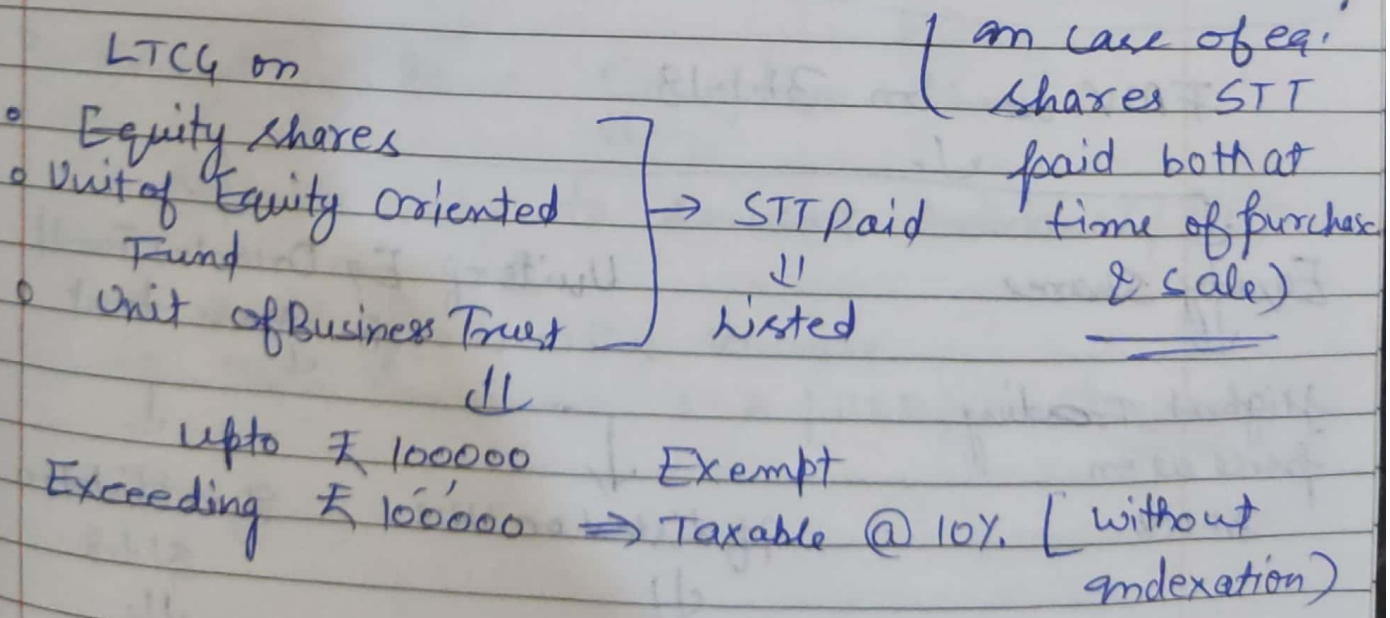 LTCG on
Equity shares
Unit of Equity Oriented
Fund
Unit of Business Trust
→ STT paid
⇓
Listed
(In case of eq.
shares STT
paid both at
time of purchase
& sale)
⇓
Upto ₹ 100000 Exempt
Exceeding ₹ 100000 ⇒ Taxable @ 10% (without
indexation)